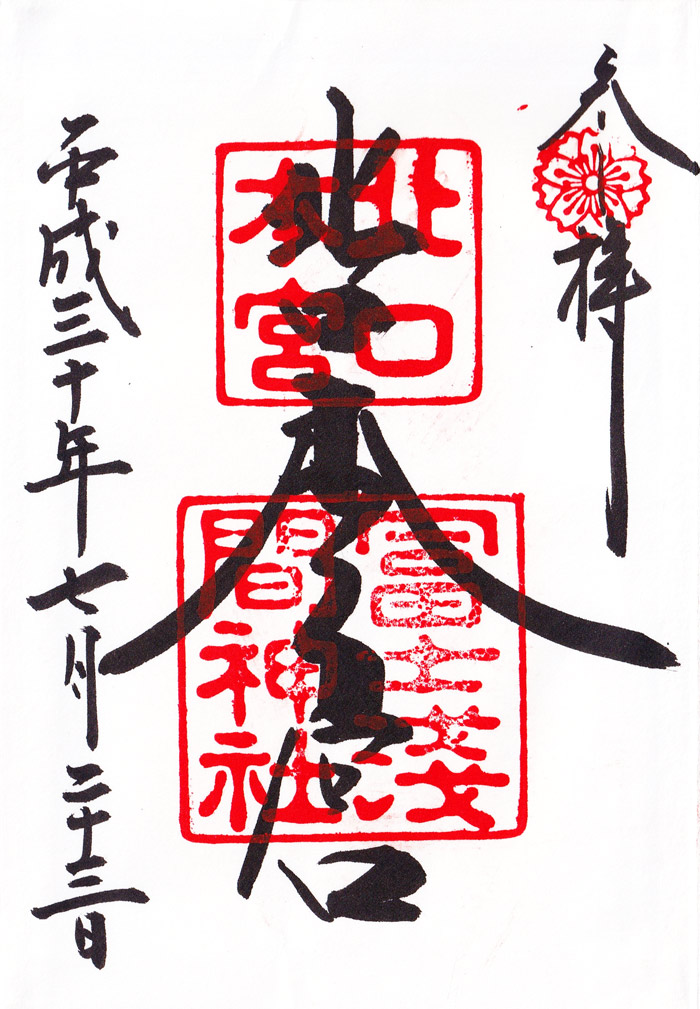 参拝
北口本宮
北口
本宮
冨士淺
間神社
平成三十年七月二十三日